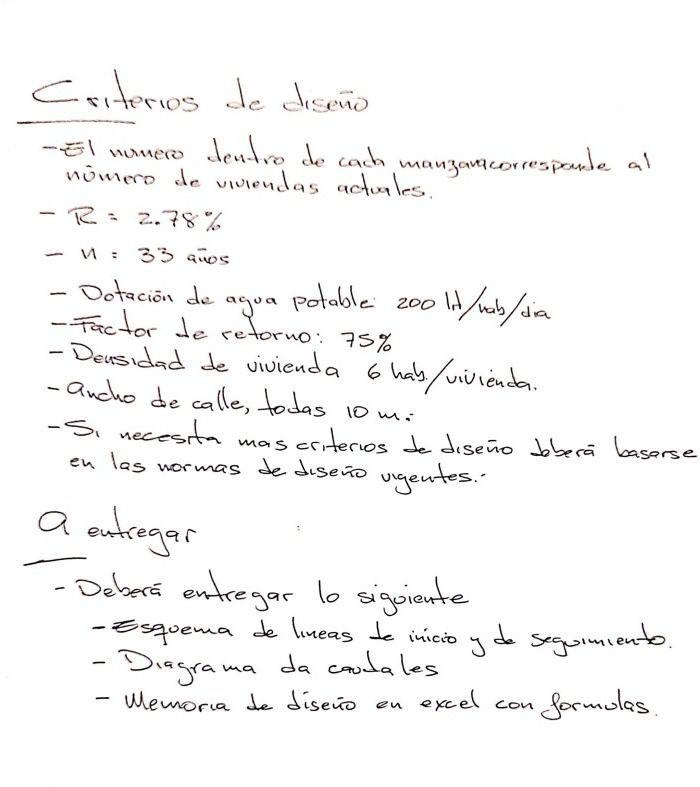 Criterios de diseño
- El numero dentro de cada manzana corresponde al
número de viviendas actuales.
- R = 2.78%
- n = 33 años
- Dotación de agua potable: 200 lt/hab/dia
- Factor de retorno: 75%
- Densidad de vivienda 6 hab./vivienda.
- Ancho de calle, todas 10 m.
- Si necesita mas criterios de diseño deberá basarse
en las normas de diseño vigentes.-
A entregar
- Deberá entregar lo siguiente
- Esquema de lineas de inicio y de seguimiento.
- Diagrama da caudales
- Memoria de diseño en excel con formulas.